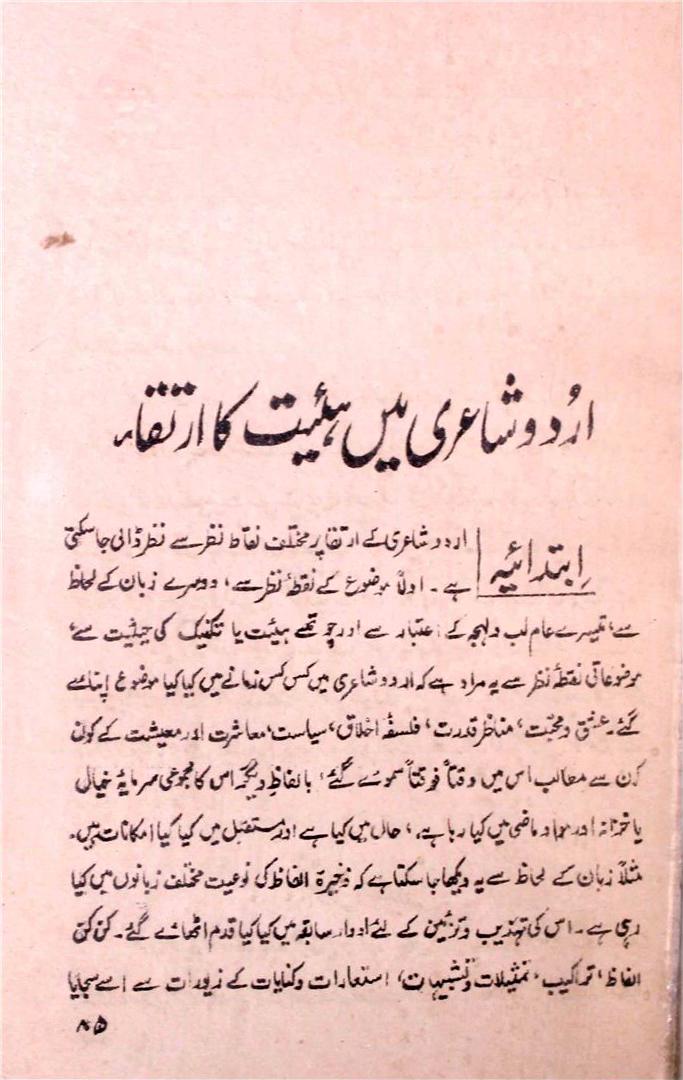 اُردو شاعری میں ہئیت کا ارتقاء
اِبتدائیہ
اردو شاعری کے ارتقا پر مختلف نقاط نظر سے نظر ڈالی جا سکتی
ہے ۔ اولاً موضوع کے نقطۂ نظر سے، دوسرے زبان کے لحاظ
سے، تیسرے عام لب ولہجہ کے اعتبار سے اور چوتھے ہیئت یا تکنیک کی حیثیت سے ۔
موضوعاتی نقطۂ نظر سے یہ مراد ہے کہ اردو شاعری میں کس کس زمانے میں کیا کیا موضوع اپنائے
گئے ۔ عشق و محبت، مناظر قدرت، فلسفۂ اخلاق، سیاست، معاشرت اور معیشت کے کون
کون سے مطالب اس میں وقتاً فوقتاً سموئے گئے، بالفاظِ دیگر اس کا مجموعی سرمایۂ خیال
یا خزانہ اور مواد ماضی میں کیا رہا ہے، حال میں کیا ہے اور مستقبل میں کیا کیا امکانات ہیں ۔
مثلاً زبان کے لحاظ سے یہ دیکھا جا سکتا ہے کہ ذخیرۂ الفاظ کی نوعیت مختلف زبانوں میں کیا
رہی ہے ۔ اس کی تہذیب و تزئین کے لئے ادوار سابقہ میں کیا کیا قدم اٹھائے گئے ۔ کن کن
الفاظ، تراکیب، تمثیلات و تشبیہات، استعارات و کنایات کے زیورات سے اسے سجایا